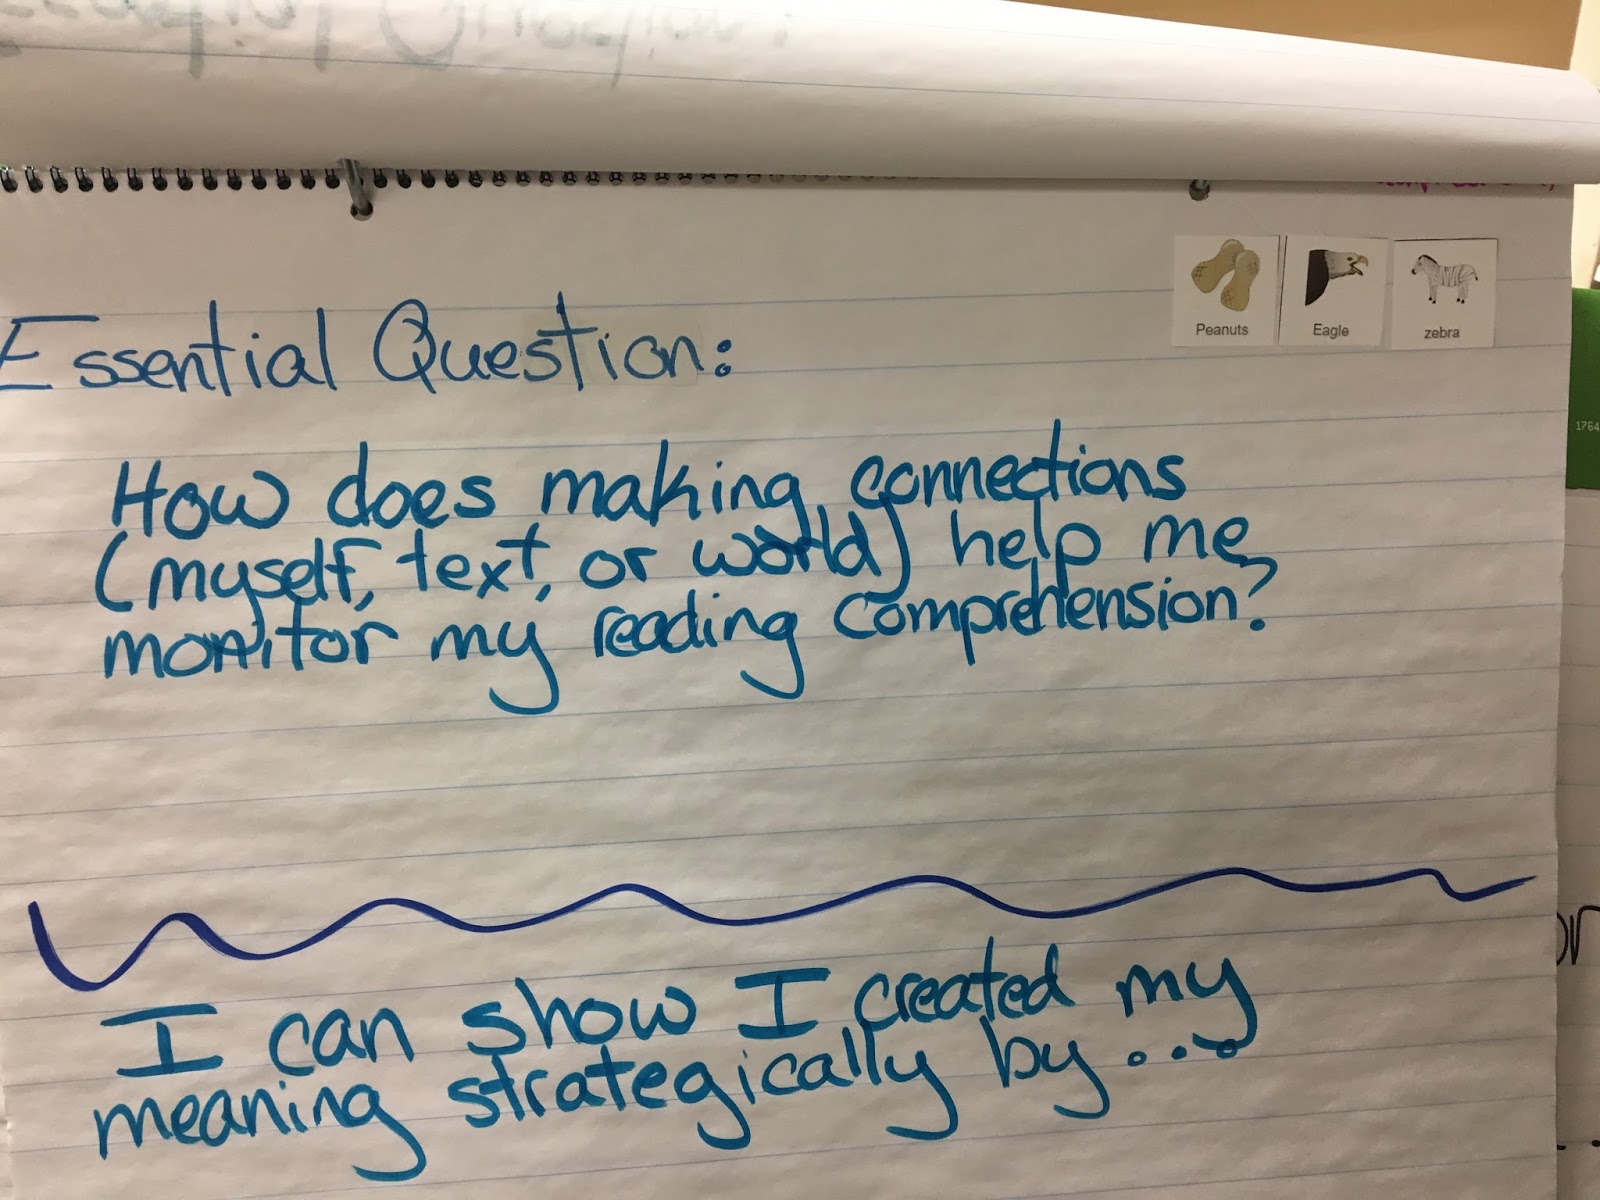 Essential Question:
Peanuts
Eagle
zebra
Essential Question:
1764
How does making connections
(myself, text, or world) help me
monitor my reading comprehension?
I can show I created my
meaning strategically by...